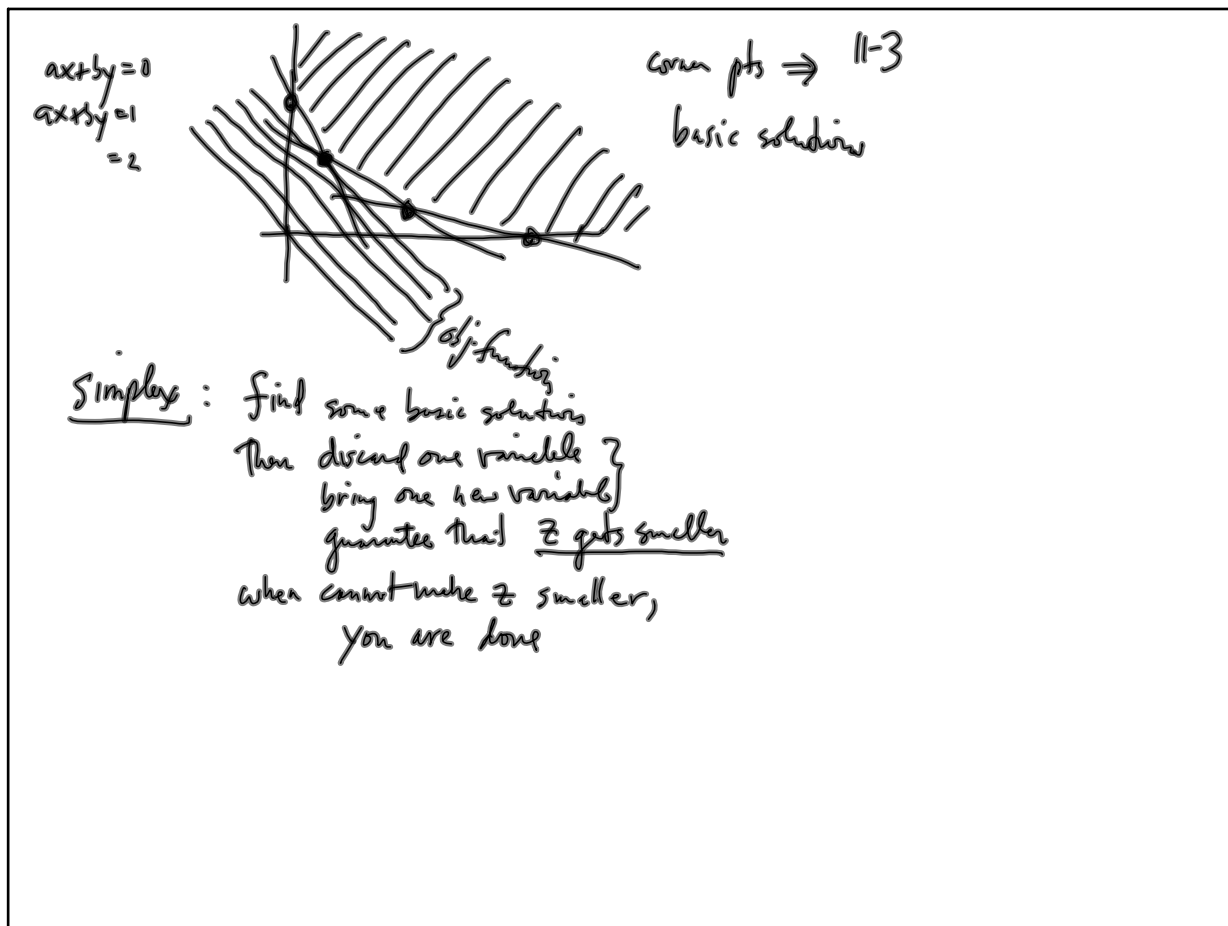 ax+by=0
ax+by=1
=2
corner pts ⇒ 11-3
basic solutions
obj function
Simplex : find some basic solutions
Then discard one variable
bring one new variable
guarantee that Z gets smaller
when cannot make Z smaller,
you are done